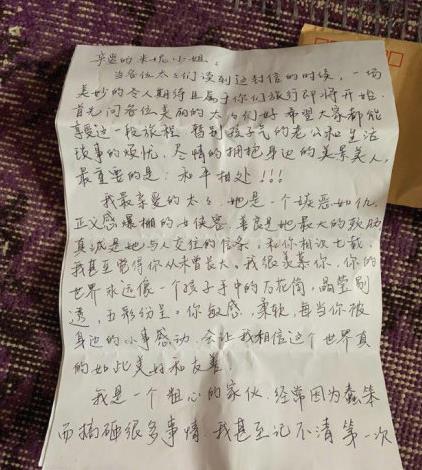 亲爱的米悦小姐。
当各位太太们读到这封信的时候，一场
美妙的令人期待且属于你们旅行即将开始.
首先问各位美丽的太太们好 希望大家都能
享受这一段旅程 暂别孩子气的老公和生活
琐事的烦忧，尽情的拥抱身边的美景美人,
最重要的是：和平相处!!!
我最亲爱的太太，她是一个嫉恶如仇,
正义感爆棚的女侠客. 善良是她最大的软肋
真诚是她与人交位的信条，和你相识七载,
我甚至觉得你从未曾长大。我很羡慕你，你的
世界永远像一个孩子手中的万花筒，晶莹剔
透，五彩纷呈。你敏感，柔软，每当你被
身边的小事感动，会让我相信这个世界真
的如此美好和友善.
我是一个粗心的家伙，经常因为蠢笨
而搞砸很多事情. 我甚至记不清第一次